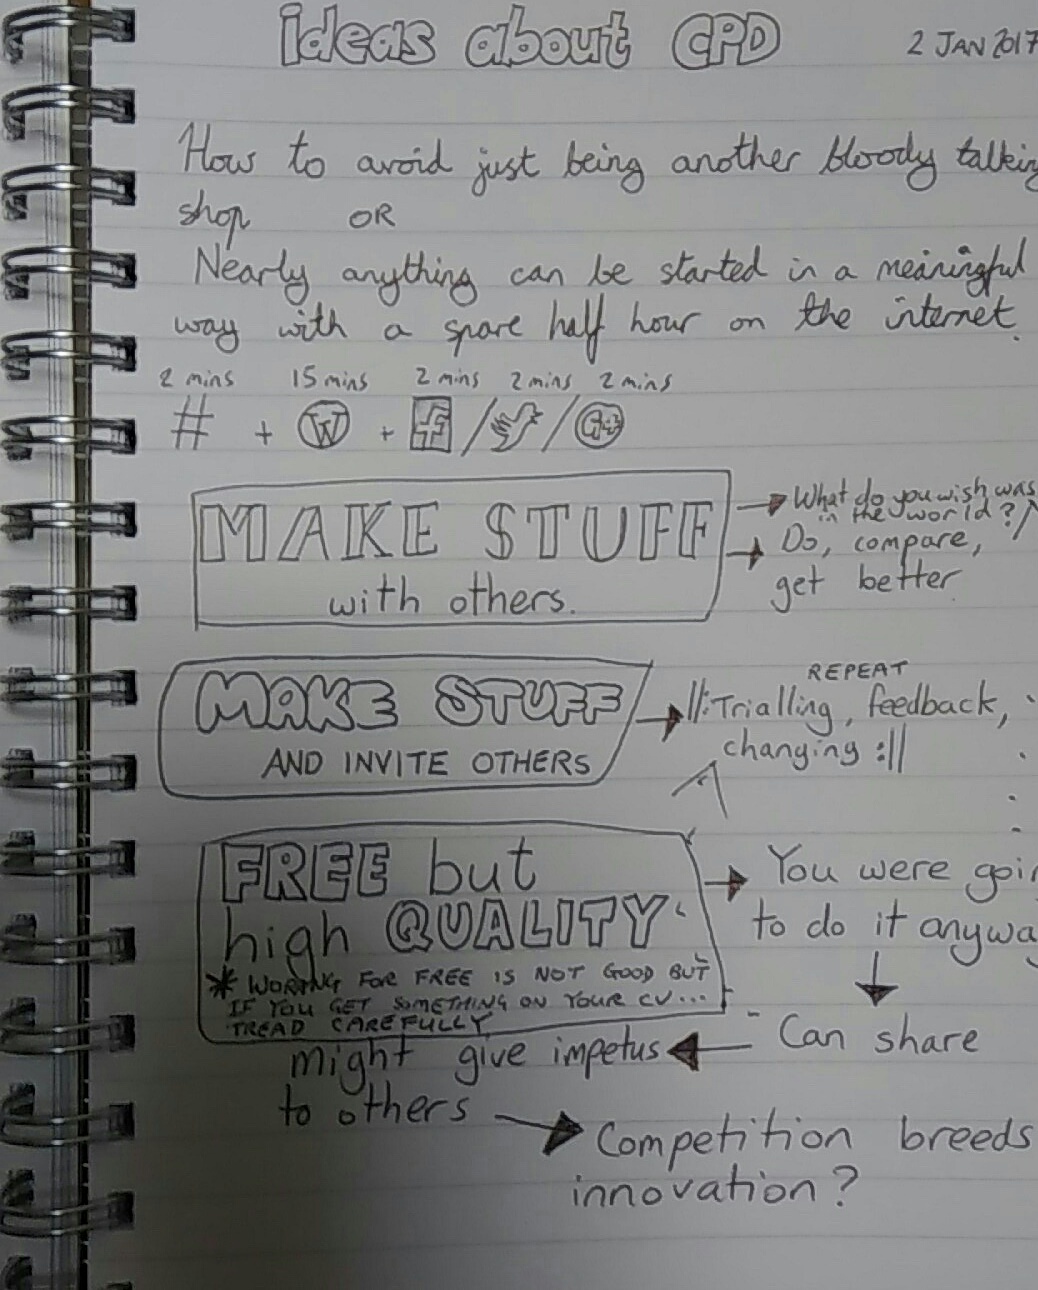 ideas about CPD
2 JAN 2017
How to avoid just being another bloody talking
shop OR
Nearly anything can be started in a meaningful
way with a spare half hour on the internet.
2 mins 15 mins 2 mins 2 mins 2 mins
# + W + f / / G+
MAKE STUFF
with others.
What do you wish was
in the world?
Do, compare,
get better
MAKE STUFF
AND INVITE OTHERS
REPEAT
||: Trialling, feedback,
changing :||
FREE but
high QUALITY
* WORKING FOR FREE IS NOT GOOD BUT
IF YOU GET SOMETHING ON YOUR CV...
TREAD CAREFULLY
You were goin
to do it anywa
Can share
might give impetus
to others
Competition breeds
innovation?